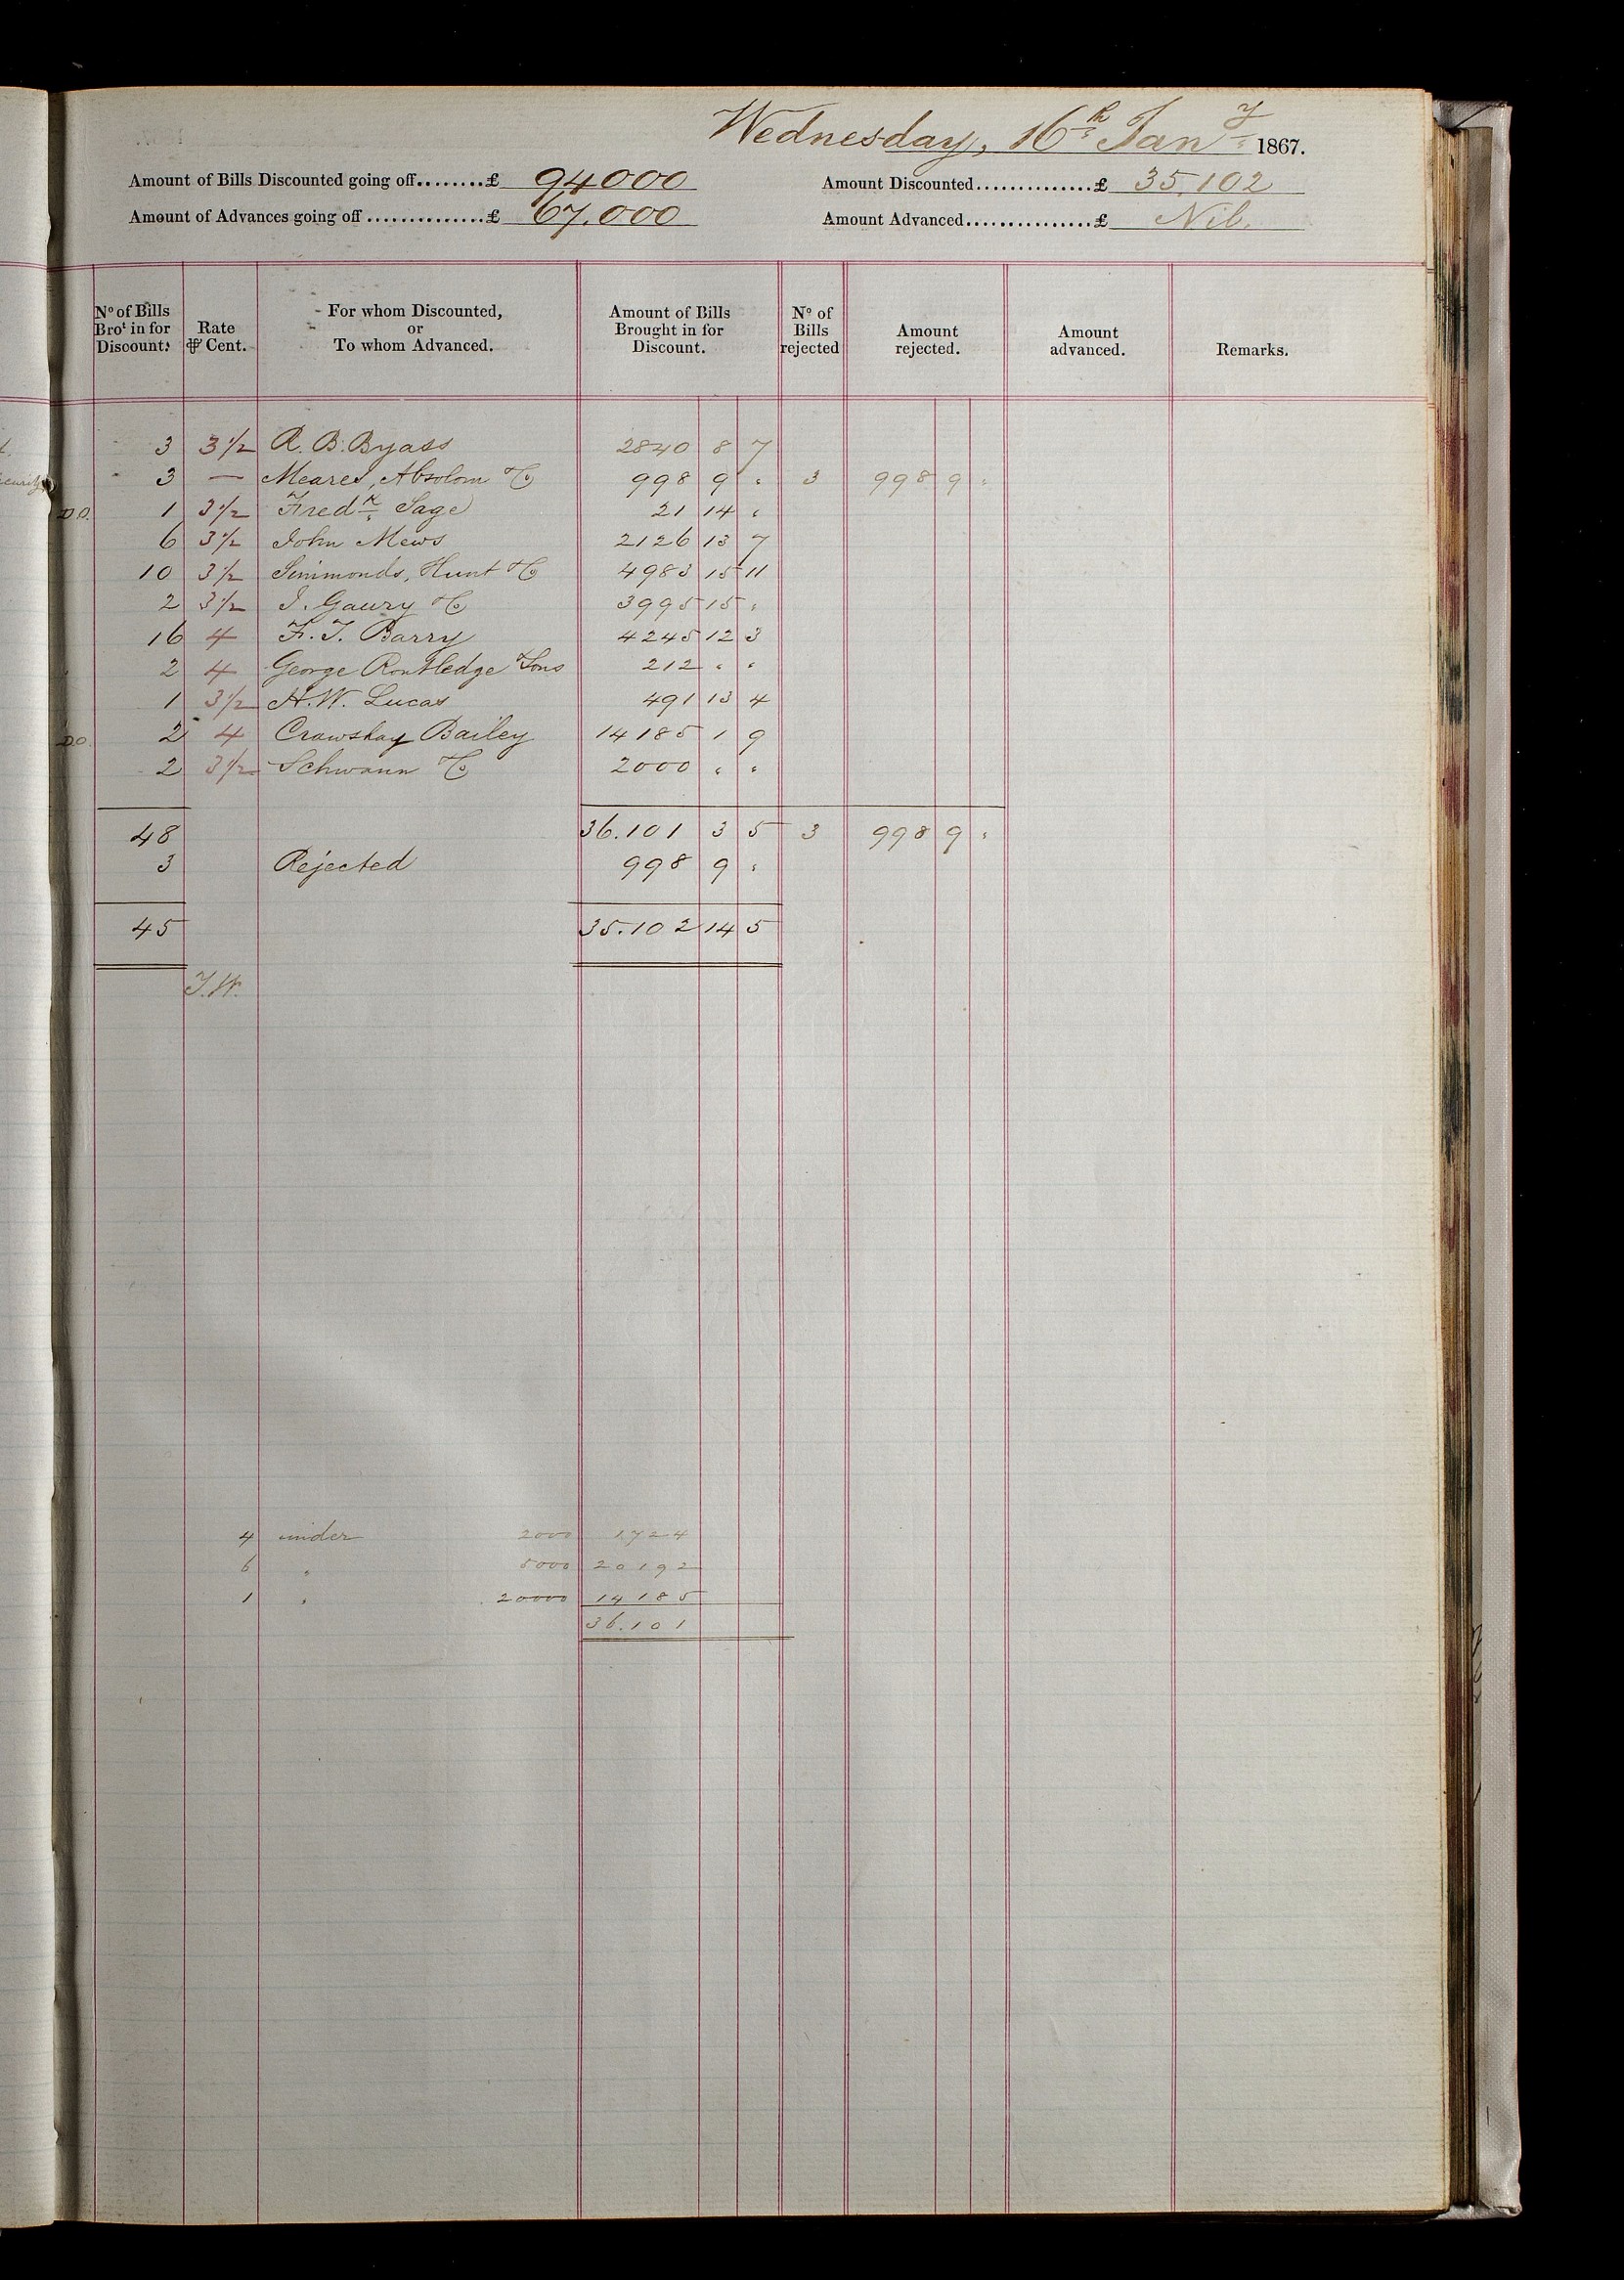 Wednesday, 16th Jany 1867.
Amount of Bills Discounted going off........£ 94000 Amount Discounted..............£ 35,102
Amount of Advances going off...............£ 67,000 Amount Advanced...............£ Nil.
No of Bills Brot in for Discount. Rate ⅌ Cent. For whom Discounted, or To whom Advanced. Amount of Bills Brought in for Discount. No of Bills rejected Amount rejected. Amount advanced. Remarks.
3 3½ R. B. Byass 2840 8 7
3 — Meares, Absolom & Co 998 9 " 3 998 9 "
D.O. 1 3½ Fredk Sage 21 14 "
6 3½ John Mews 2126 13 7
10 3½ Simmonds, Hunt & Co 4983 15 11
2 3½ I. Gaury & Co 3995 15 "
16 4 F. T. Barry 4245 12 3
2 4 George Routledge & Sons 212 " "
1 3½ H. W. Lucas 491 13 4
D.O. 2 4 Crawshay Bailey 14185 1 9
2 3½ Schwann & Co 2000 " "
48 36.101 3 5 3 998 9 "
3 Rejected 998 9 "
45 35.102 14 5
T.W.
4 under 2000 1724
6 " 5000 20192
1 " 20000 14185
36.101